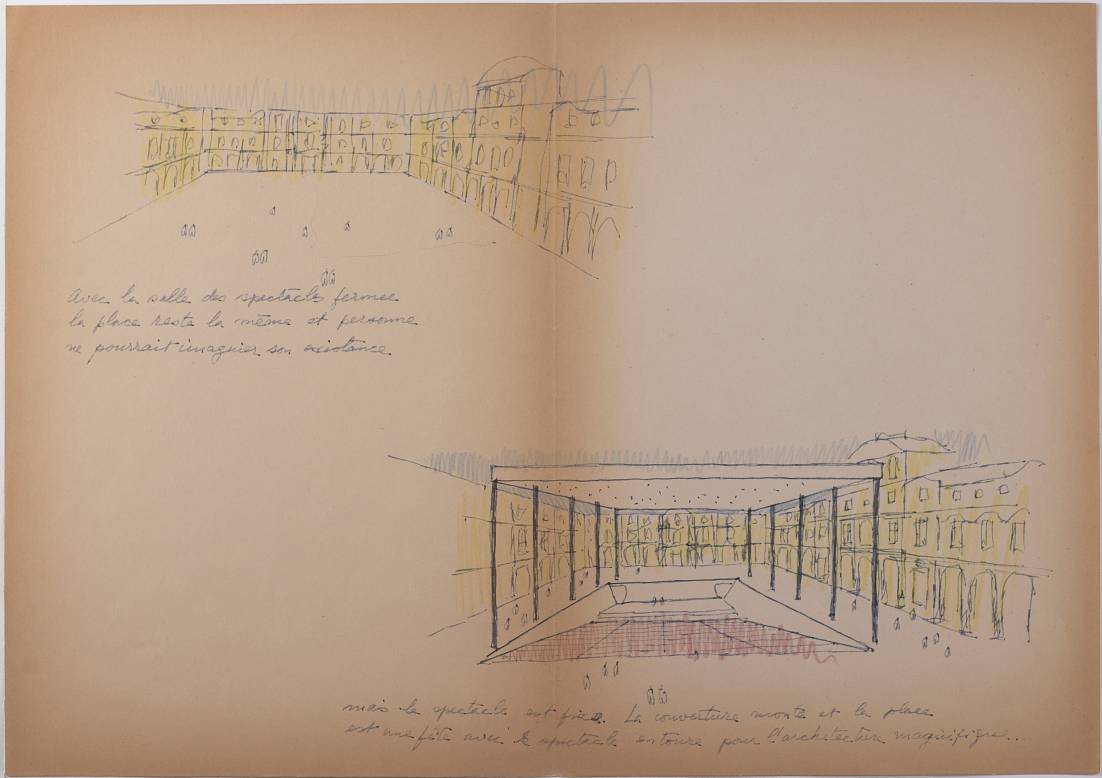 Avec la salle des spectacls fermee
la place reste la même et personne
ne pourrait imaginer son existance.
mais le spectacle est fixe. La couverture monte et la place
est une fête avec le spectacle entouré pour l'architecture magnifique...